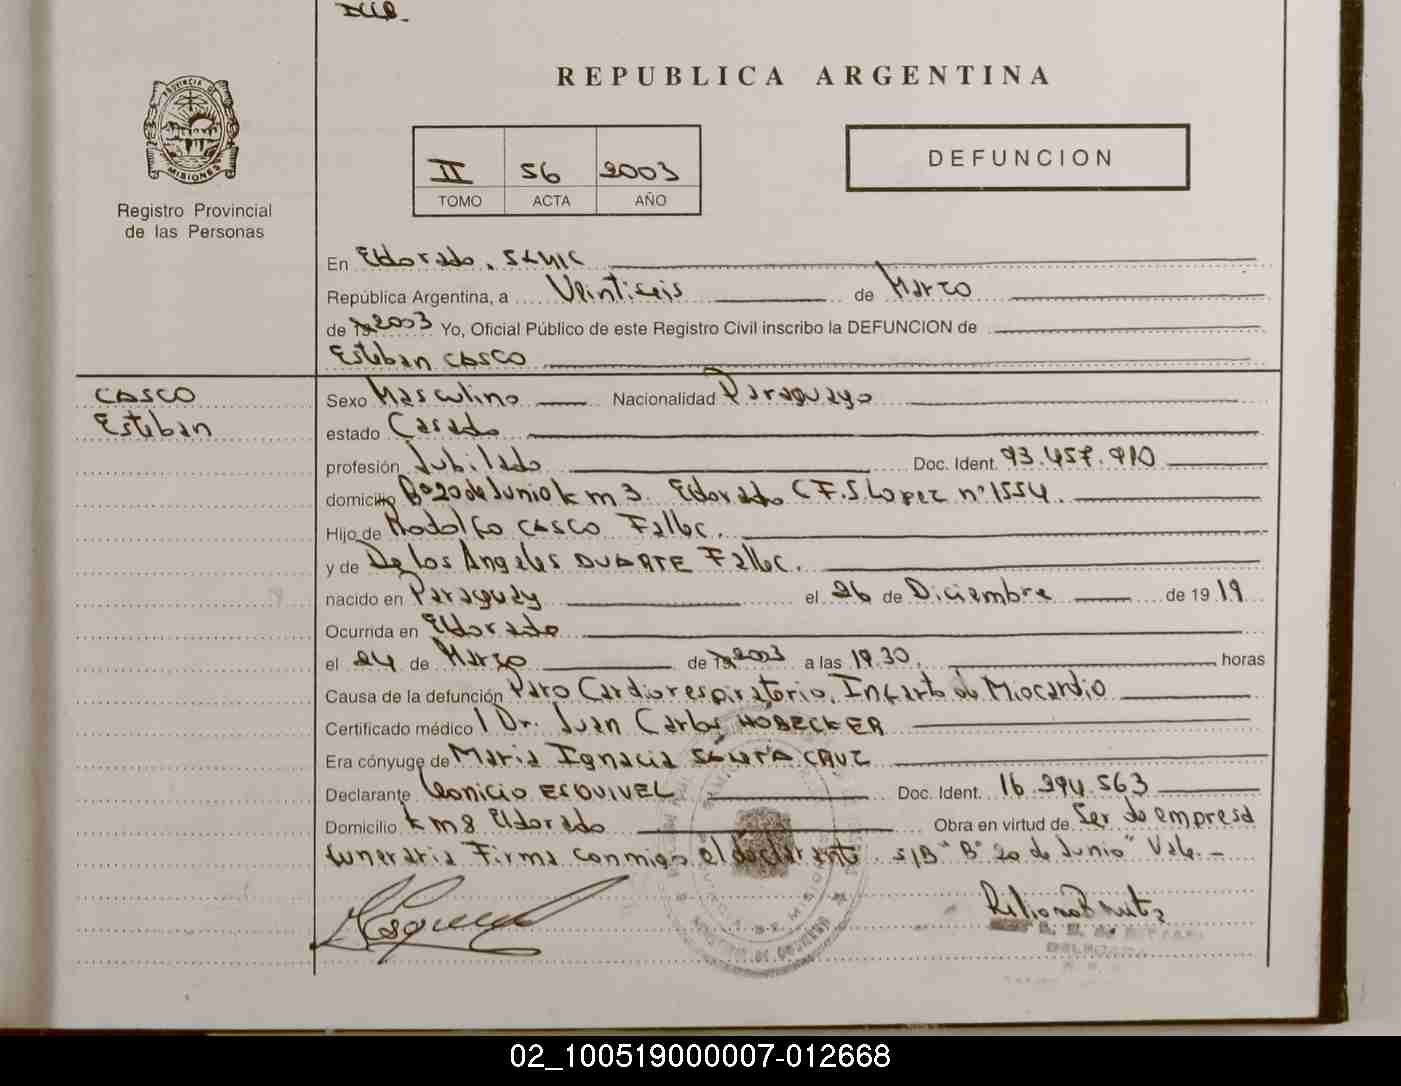 REPUBLICA ARGENTINA
PROVINCIA DE
MISIONES
Registro Provincial
de las Personas
II 56 2003
TOMO ACTA AÑO
DEFUNCION
En Eldorado,
República Argentina, a Veintiseis de Marzo
de 2003 Yo, Oficial Público de este Registro Civil inscribo la DEFUNCION de
Esteban CASCO
CASCO
Esteban
Sexo Masculino Nacionalidad Paraguayo
estado Casado
profesión Jubilado Doc. Ident. 93.457.910
domicilio Bº 20 de Junio km 3. Eldorado C F.S. Lopez nº 1554.
Hijo de Rodolfo CASCO Fallec.
y de De los Angeles DUARTE Fallec.
nacido en Paraguay el 26 de Diciembre de 19 19
Ocurrida en Eldorado
el 24 de Marzo de 2003 a las 19.30. horas
Causa de la defunción Paro Cardiorespiratorio, Infarto de Miocardio
Certificado médico Dr. Juan Carlos HOBECKER
Era cónyuge de Maria Ignacia SANTA CRUZ
Declarante Leonicio ESQUIVEL Doc. Ident. 16.294.563
Domicilio km 8 Eldorado Obra en virtud de Ser de empresa
funeraria Firma conmigo el declarante. S/B "Bº 20 de Junio" Vale.-
02_100519000007-012668